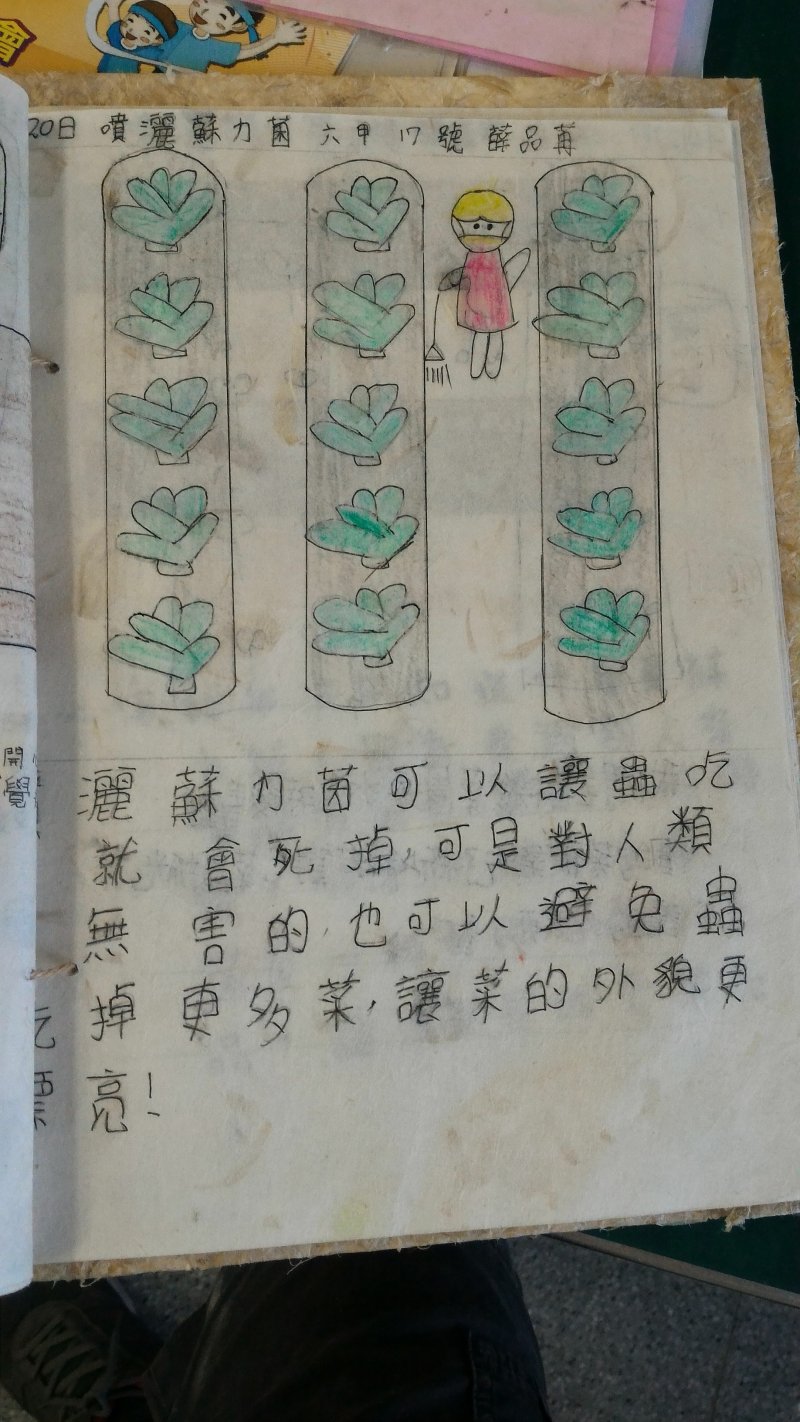 20日 噴灑蘇力菌 六甲 17號 薛品苒
灑蘇力菌可以讓蟲吃
就會死掉,可是對人類
無害的,也可以避免蟲
吃掉更多菜,讓菜的外貌更
漂亮!
開
覺